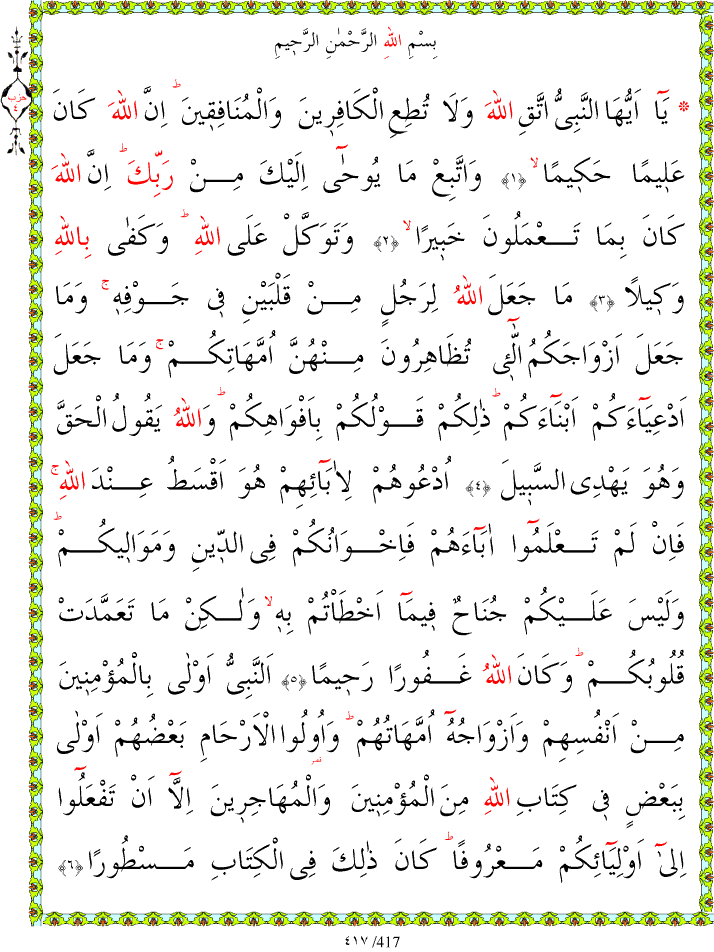 بِسْمِ اللهِ الرَّحْمٰنِ الرَّحٖيمِ
حزب
٤
* يَٓا اَيُّهَا النَّبِىُّ اتَّقِ اللهَ وَلَا تُطِعِ الْكَافِرٖينَ وَالْمُنَافِقٖينَ ؕ اِنَّ اللهَ كَانَ
عَلٖيمًا حَكٖيمًا ۙ ﴿١﴾ وَاتَّبِعْ مَا يُوحٰٓى اِلَيْكَ مِنْ رَبِّكَ ؕ اِنَّ اللهَ
كَانَ بِمَا تَعْمَلُونَ خَبٖيرًا ۙ ﴿٢﴾ وَتَوَكَّلْ عَلَى اللهِ ؕ وَكَفٰى بِاللهِ
وَكٖيلًا ﴿٣﴾ مَا جَعَلَ اللهُ لِرَجُلٍ مِنْ قَلْبَيْنِ فٖى جَوْفِهٖ ۚ وَمَا
جَعَلَ اَزْوَاجَكُمُ الّٰٓئٖى تُظَاهِرُونَ مِنْهُنَّ اُمَّهَاتِكُمْ ۚ وَمَا جَعَلَ
اَدْعِيَٓاءَكُمْ اَبْنَٓاءَكُمْ ؕ ذٰلِكُمْ قَوْلُكُمْ بِاَفْوَاهِكُمْ ؕ وَاللهُ يَقُولُ الْحَقَّ
وَهُوَ يَهْدِى السَّبٖيلَ ﴿٤﴾ اُدْعُوهُمْ لِاٰبَٓائِهِمْ هُوَ اَقْسَطُ عِنْدَ اللهِ ۚ
فَاِنْ لَمْ تَعْلَمُٓوا اٰبَٓاءَهُمْ فَاِخْوَانُكُمْ فِى الدّٖينِ وَمَوَالٖيكُمْ ؕ
وَلَيْسَ عَلَيْكُمْ جُنَاحٌ فٖيمَٓا اَخْطَاْتُمْ بِهٖ ۙ وَلٰكِنْ مَا تَعَمَّدَتْ
قُلُوبُكُمْ ؕ وَكَانَ اللهُ غَفُورًا رَحٖيمًا ﴿٥﴾ اَلنَّبِىُّ اَوْلٰى بِالْمُؤْمِنٖينَ
مِنْ اَنْفُسِهِمْ وَاَزْوَاجُهُٓ اُمَّهَاتُهُمْ ؕ وَاُولُوا الْاَرْحَامِ بَعْضُهُمْ اَوْلٰى
بِبَعْضٍ فٖى كِتَابِ اللهِ مِنَ الْمُؤْمِنٖينَ وَالْمُهَاجِرٖينَ اِلَّٓا اَنْ تَفْعَلُٓوا
اِلٰٓى اَوْلِيَٓائِكُمْ مَعْرُوفًا ؕ كَانَ ذٰلِكَ فِى الْكِتَابِ مَسْطُورًا ﴿٦﴾
٤١٧ /417